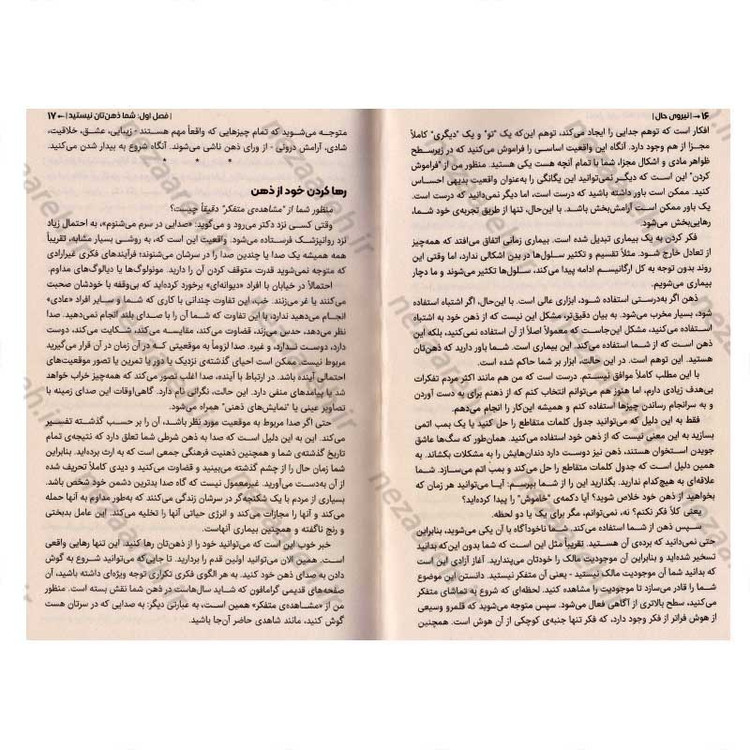 ۱۶ → | نیروی حال |
افکار است که توهم جدایی را ایجاد می‌کند، توهم این‌که یک "تو" و یک "دیگری" کاملاً
مجزا از هم وجود دارد. آنگاه این واقعیت اساسی را فراموش می‌کنید که در زیر سطح
ظواهر مادی و اشکال مجزا، شما با تمام آنچه هست یکی هستید. منظور من از "فراموش
کردن" این است که دیگر نمی‌توانید این یگانگی را به‌عنوان واقعیت بدیهی احساس
کنید. ممکن است باور داشته باشید که درست است، اما دیگر نمی‌دانید که درست است.
یک باور ممکن است آرامش‌بخش باشد. با این‌حال، تنها از طریق تجربه‌ی خود شما،
رهایی‌بخش می‌شود.
فکر کردن به یک بیماری تبدیل شده است. بیماری زمانی اتفاق می‌افتد که همه‌چیز
از تعادل خارج شود. مثلاً تقسیم و تکثیر سلول‌ها در بدن اشکالی ندارد، اما وقتی این
روند بدون توجه به کل ارگانیسم ادامه پیدا می‌کند، سلول‌ها تکثیر می‌شوند و ما دچار
بیماری می‌شویم.
ذهن اگر به‌درستی استفاده شود، ابزاری عالی است. با این‌حال، اگر اشتباه استفاده
شود، بسیار مخرب می‌شود. به بیان دقیق‌تر، مشکل این نیست که از ذهن خود به اشتباه
استفاده می‌کنید، مشکل این‌جاست که معمولاً اصلاً از آن استفاده نمی‌کنید، بلکه این
ذهن است که از شما استفاده می‌کند. این بیماری است. شما باور دارید که ذهن‌تان
هستید. این توهم است. در این حالت، ابزار بر شما حاکم شده است.
با این مطلب کاملاً موافق نیستم. درست است که من هم مانند اکثر مردم تفکرات
بی‌هدف زیادی دارم، اما هنوز هم می‌توانم انتخاب کنم که از ذهنم برای به دست آوردن
و به سرانجام رساندن چیزها استفاده کنم و همیشه این‌کار را انجام می‌دهم.
فقط به این دلیل که می‌توانید جدول کلمات متقاطع را حل کنید یا یک بمب اتمی
بسازید به این معنی نیست که از ذهن خود استفاده می‌کنید. همان‌طور که سگ‌ها عاشق
جویدن استخوان هستند، ذهن نیز دوست دارد دندان‌هایش را به مشکلات بچکاند. به
همین دلیل است که جدول کلمات متقاطع را حل می‌کند و بمب اتم می‌سازد. شما
علاقه‌ای به هیچ‌کدام ندارید. بگذارید این را از شما بپرسم: آیا می‌توانید هر زمان که
بخواهید از ذهن خود خلاص شوید؟ آیا دکمه‌ی "خاموش" را پیدا کرده‌اید؟
یعنی کلاً فکر نکنم؟ نه، نمی‌توانم، مگر برای یک یا دو لحظه.
سپس ذهن از شما استفاده می‌کند. شما ناخودآگاه با آن یکی می‌شوید، بنابراین
حتی نمی‌دانید که برده‌ی آن هستید. تقریباً مثل این است که شما بدون این‌که بدانید
تسخیر شده‌اید و بنابراین آن موجودیت مالک را خودتان می‌پندارید. آغاز آزادی این است
که بدانید شما آن موجودیت مالک نیستید - یعنی آن متفکر نیستید. دانستن این موضوع
شما را قادر می‌سازد تا موجودیت را مشاهده کنید. لحظه‌ای که شروع به تماشای متفکر
می‌کنید، سطح بالاتری از آگاهی فعال می‌شود. سپس متوجه می‌شوید که قلمرو وسیعی
از هوش فراتر از فکر وجود دارد، که فکر تنها جنبه‌ی کوچکی از آن هوش است. همچنین
| فصل اول: شما ذهن‌تان نیستید | ← ۱۷
متوجه می‌شوید که تمام چیزهایی که واقعاً مهم هستند - زیبایی، عشق، خلاقیت،
شادی، آرامش درونی - از ورای ذهن ناشی می‌شوند. آنگاه شروع به بیدار شدن می‌کنید.
* * *
رها کردن خود از ذهن
منظور شما از "مشاهده‌ی متفکر" دقیقاً چیست؟
وقتی کسی نزد دکتر می‌رود و می‌گوید: «صدایی در سرم می‌شنوم»، به احتمال زیاد
نزد روانپزشک فرستاده می‌شود. واقعیت این است که، به روشی بسیار مشابه، تقریباً
همه همیشه یک صدا یا چندین صدا را در سرشان می‌شنوند؛ فرآیندهای فکری غیرارادی
که متوجه نمی‌شوید قدرت متوقف کردن آن را دارید. مونولوگ‌ها یا دیالوگ‌های مداوم.
احتمالاً در خیابان با افراد «دیوانه‌ای» برخورد کرده‌اید که بی‌وقفه با خودشان صحبت
می‌کنند یا غر می‌زنند. خب، این تفاوت چندانی با کاری که شما و سایر افراد «عادی»
انجام می‌دهید ندارد، با این تفاوت که شما آن را با صدای بلند انجام نمی‌دهید. صدا
نظر می‌دهد، حدس می‌زند، قضاوت می‌کند، مقایسه می‌کند، شکایت می‌کند، دوست
دارد، دوست ندارد، و غیره. صدا لزوماً به موقعیتی که در آن زمان در آن قرار می‌گیرید
مربوط نیست. ممکن است احیای گذشته‌ی نزدیک یا دور یا تمرین یا تصور موقعیت‌های
احتمالی آینده باشد. در ارتباط با آینده، صدا اغلب تصور می‌کند که همه‌چیز خراب خواهد
شد یا پیامدهای منفی دارد. این حالت، نگرانی نام دارد. گاهی‌اوقات این صدای زمینه با
تصاویر عینی یا "نمایش‌های ذهنی" همراه می‌شود.
حتی اگر صدا مربوط به موقعیت مورد نظر باشد، آن را بر حسب گذشته تفسیر
می‌کند. این به این دلیل است که صدا به ذهن شرطی شما تعلق دارد که نتیجه‌ی تمام
تاریخ گذشته‌ی شما و همچنین ذهنیت فرهنگی جمعی است که به ارث برده‌اید. بنابراین
شما زمان حال را از چشم گذشته می‌بینید و قضاوت می‌کنید و دیدی کاملاً تحریف شده
از آن به‌دست می‌آورید. غیرمعمول نیست که گاه صدا بدترین دشمن خود شخص باشد.
بسیاری از مردم با یک شکنجه‌گر در سرشان زندگی می‌کنند که به‌طور مداوم به آنها حمله
می‌کند و آنها را مجازات می‌کند و انرژی حیاتی آنها را تخلیه می‌کند. این عامل بدبختی
و رنج ناگفته و همچنین بیماری آنهاست.
خبر خوب این است که می‌توانید خود را از ذهن‌تان رها کنید. این تنها رهایی واقعی
است. همین الان می‌توانید اولین قدم را بردارید. تا جایی که می‌توانید شروع به گوش
دادن به صدای ذهن خود کنید. به هر الگوی فکری تکراری توجه ویژه‌ای داشته باشید، آن
صفحه‌های قدیمی گرامافون که شاید سال‌هاست در ذهن شما نقش بسته است. منظور
من از «مشاهده‌ی متفکر» همین است، به عبارتی دیگر: به صدایی که در سرتان هست
گوش کنید، مانند شاهدی حاضر آن‌جا باشید.
nezaareh.ir